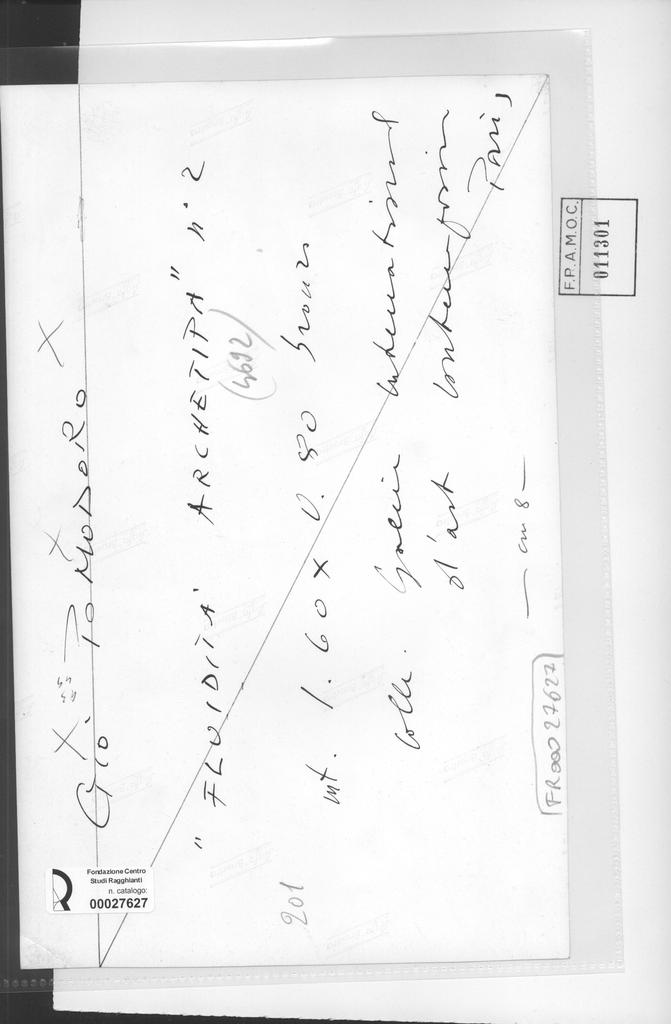 Gio'. POMODORO
43
44
"FLUIDITÀ ARCHETIPA" n. 2
(4692)
mt. 1.60 x 0.80 bronzo
Colle. Galerie International
d'art contemporain
Paris,
— cm 8 —
201
FR00027627
F.P.A.M.O.C.
011301
Fondazione Centro
Studi Ragghianti
n. catalogo:
00027627